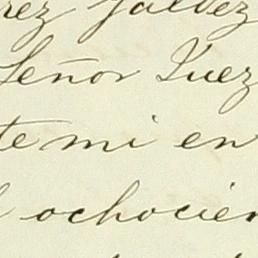 rez Galvez
Señor Juez
te mi en
l ochocien